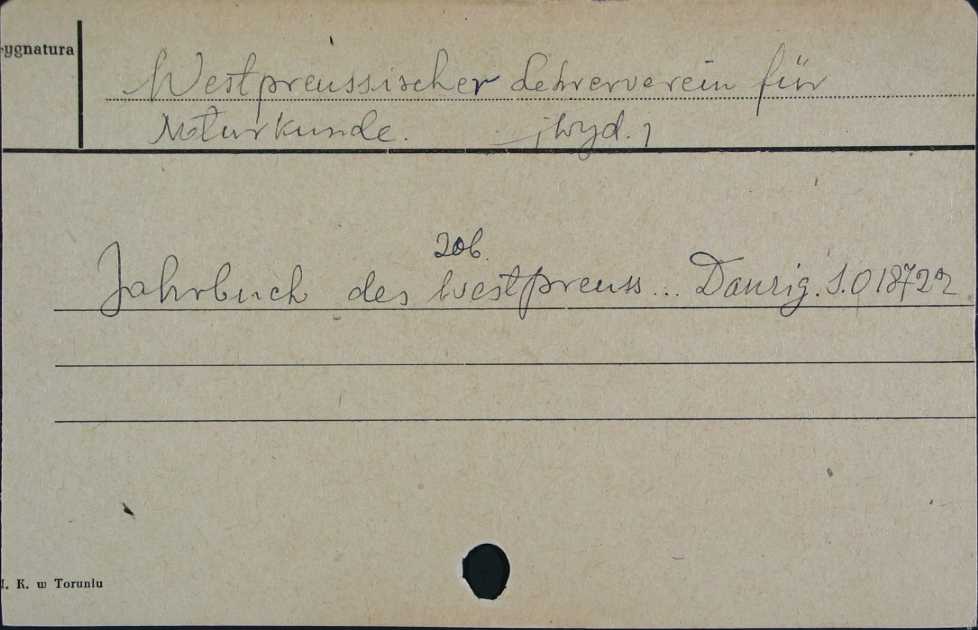 ygnatura
Westpreussischer Lehrerverein für
Naturkunde. [wyd.]
zob.
Jahrbuch des Westpreuss... Danzig. S.018722
I. K. w Toruniu